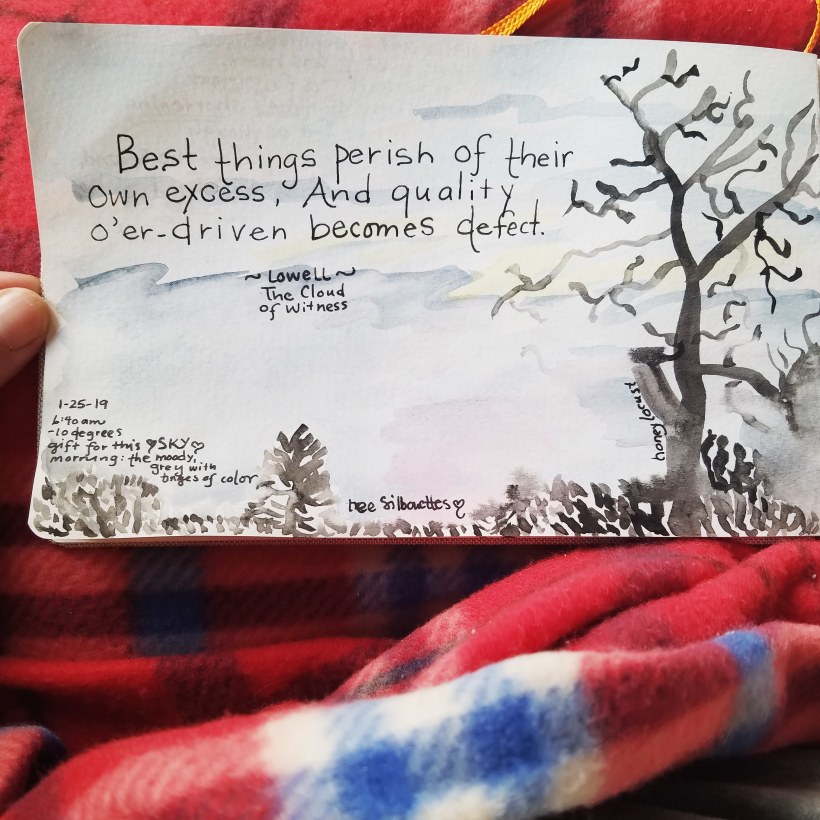 Best things perish of their
own excess, And quality
o'er-driven becomes defect.
~ Lowell ~
The Cloud
of Witness
1-25-19
6:40am
-10 degrees
gift for this ♡SKY♡
morning: the moody,
grey with
tinges of color
tree silhouettes ♡
honey locust